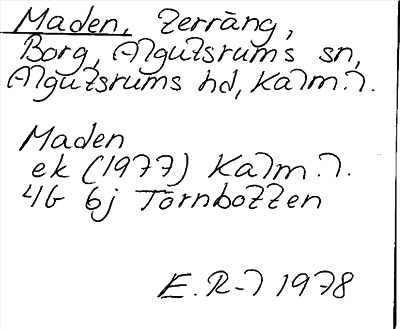 Maden, terräng,
Borg, Algutsrums sn,
Algutsrums hd, Kalm.l.
Maden
ek (1977) Kalm.l.
4G 6j Törnbotten
E.R-l 1978